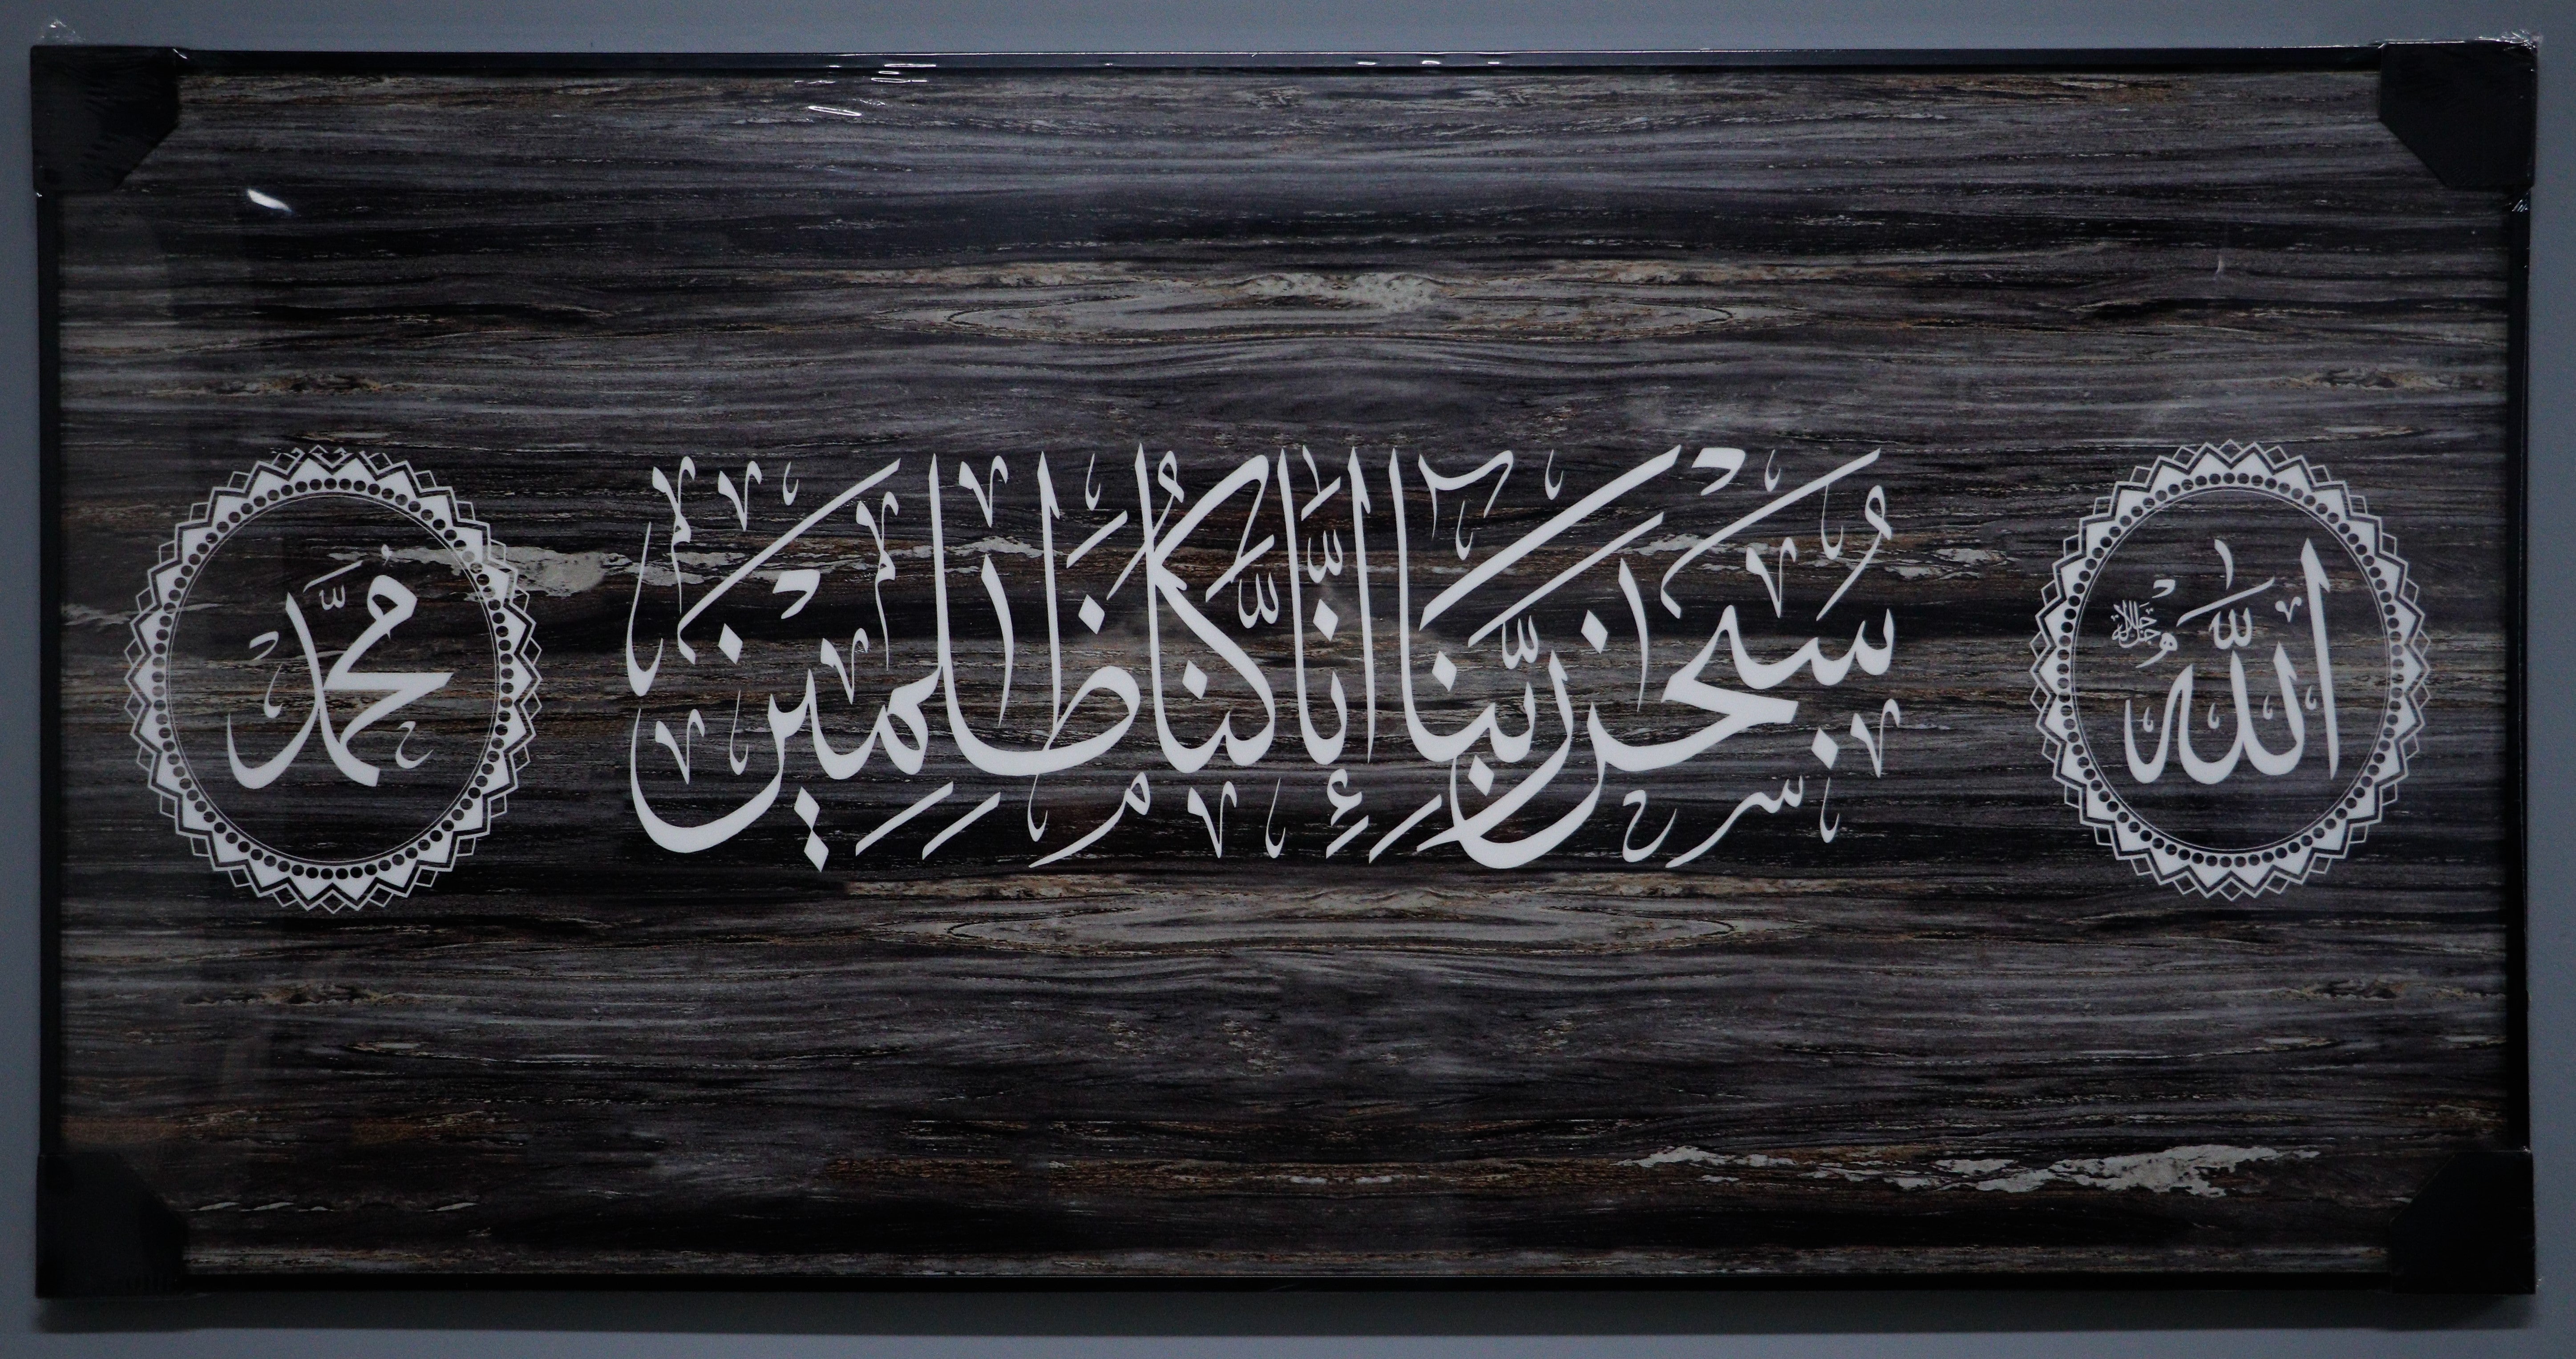 اللَّه جل جلاله
سُبْحَٰنَ رَبِّنَآ إِنَّا كُنَّا ظَٰلِمِينَ
مُحَمَّد